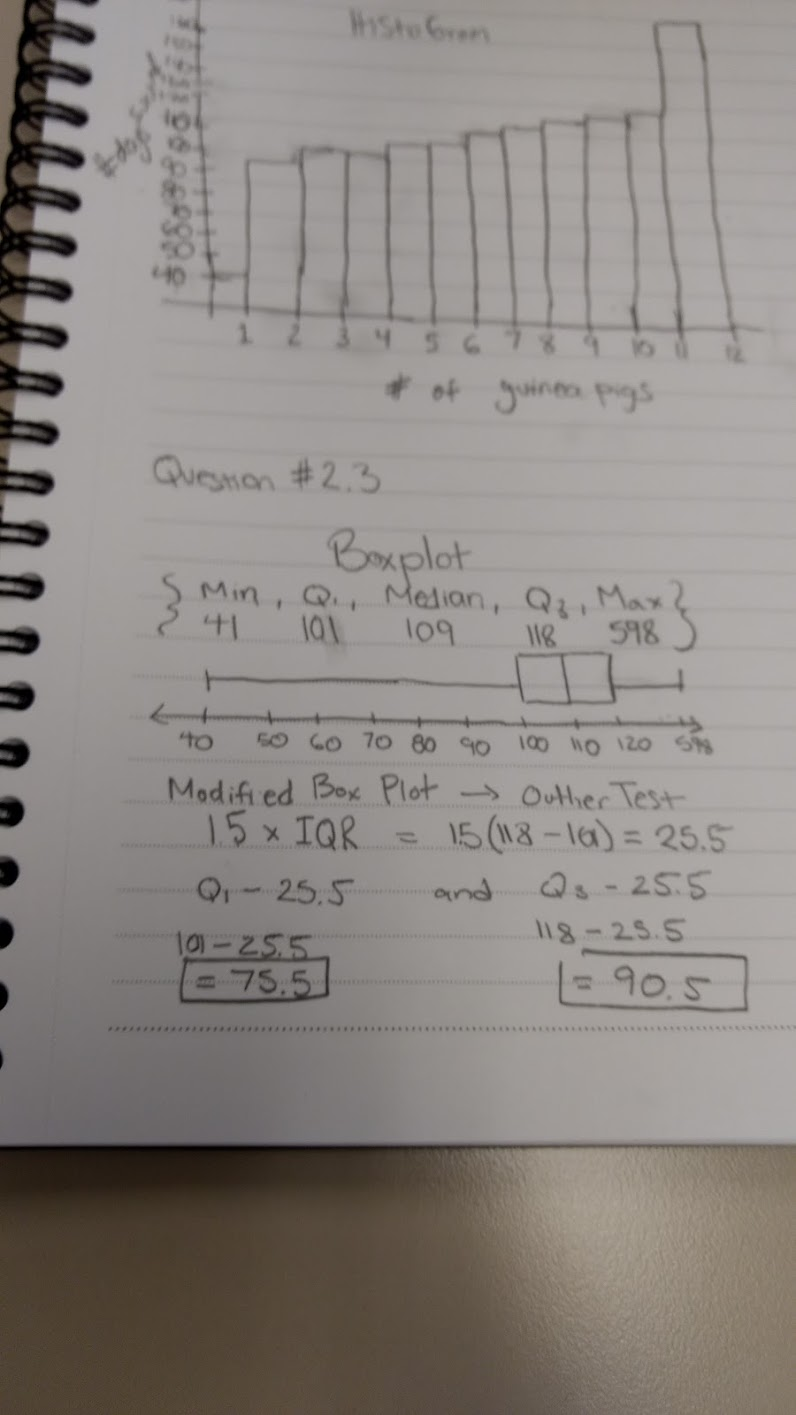 HistoGram
40
1 2 3 4 5 6 7 8 9 10 11 12
# of guinea pigs
Question #2.3
Boxplot
{ Min, Q1, Median, Q3, Max }
41 101 109 118 598
40 50 60 70 80 90 100 110 120 598
Modified Box Plot → Outlier Test
1.5 × IQR = 1.5(118-101) = 25.5
Q1 - 25.5 and Q3 - 25.5
101 - 25.5 118 - 25.5
= 75.5 = 90.5